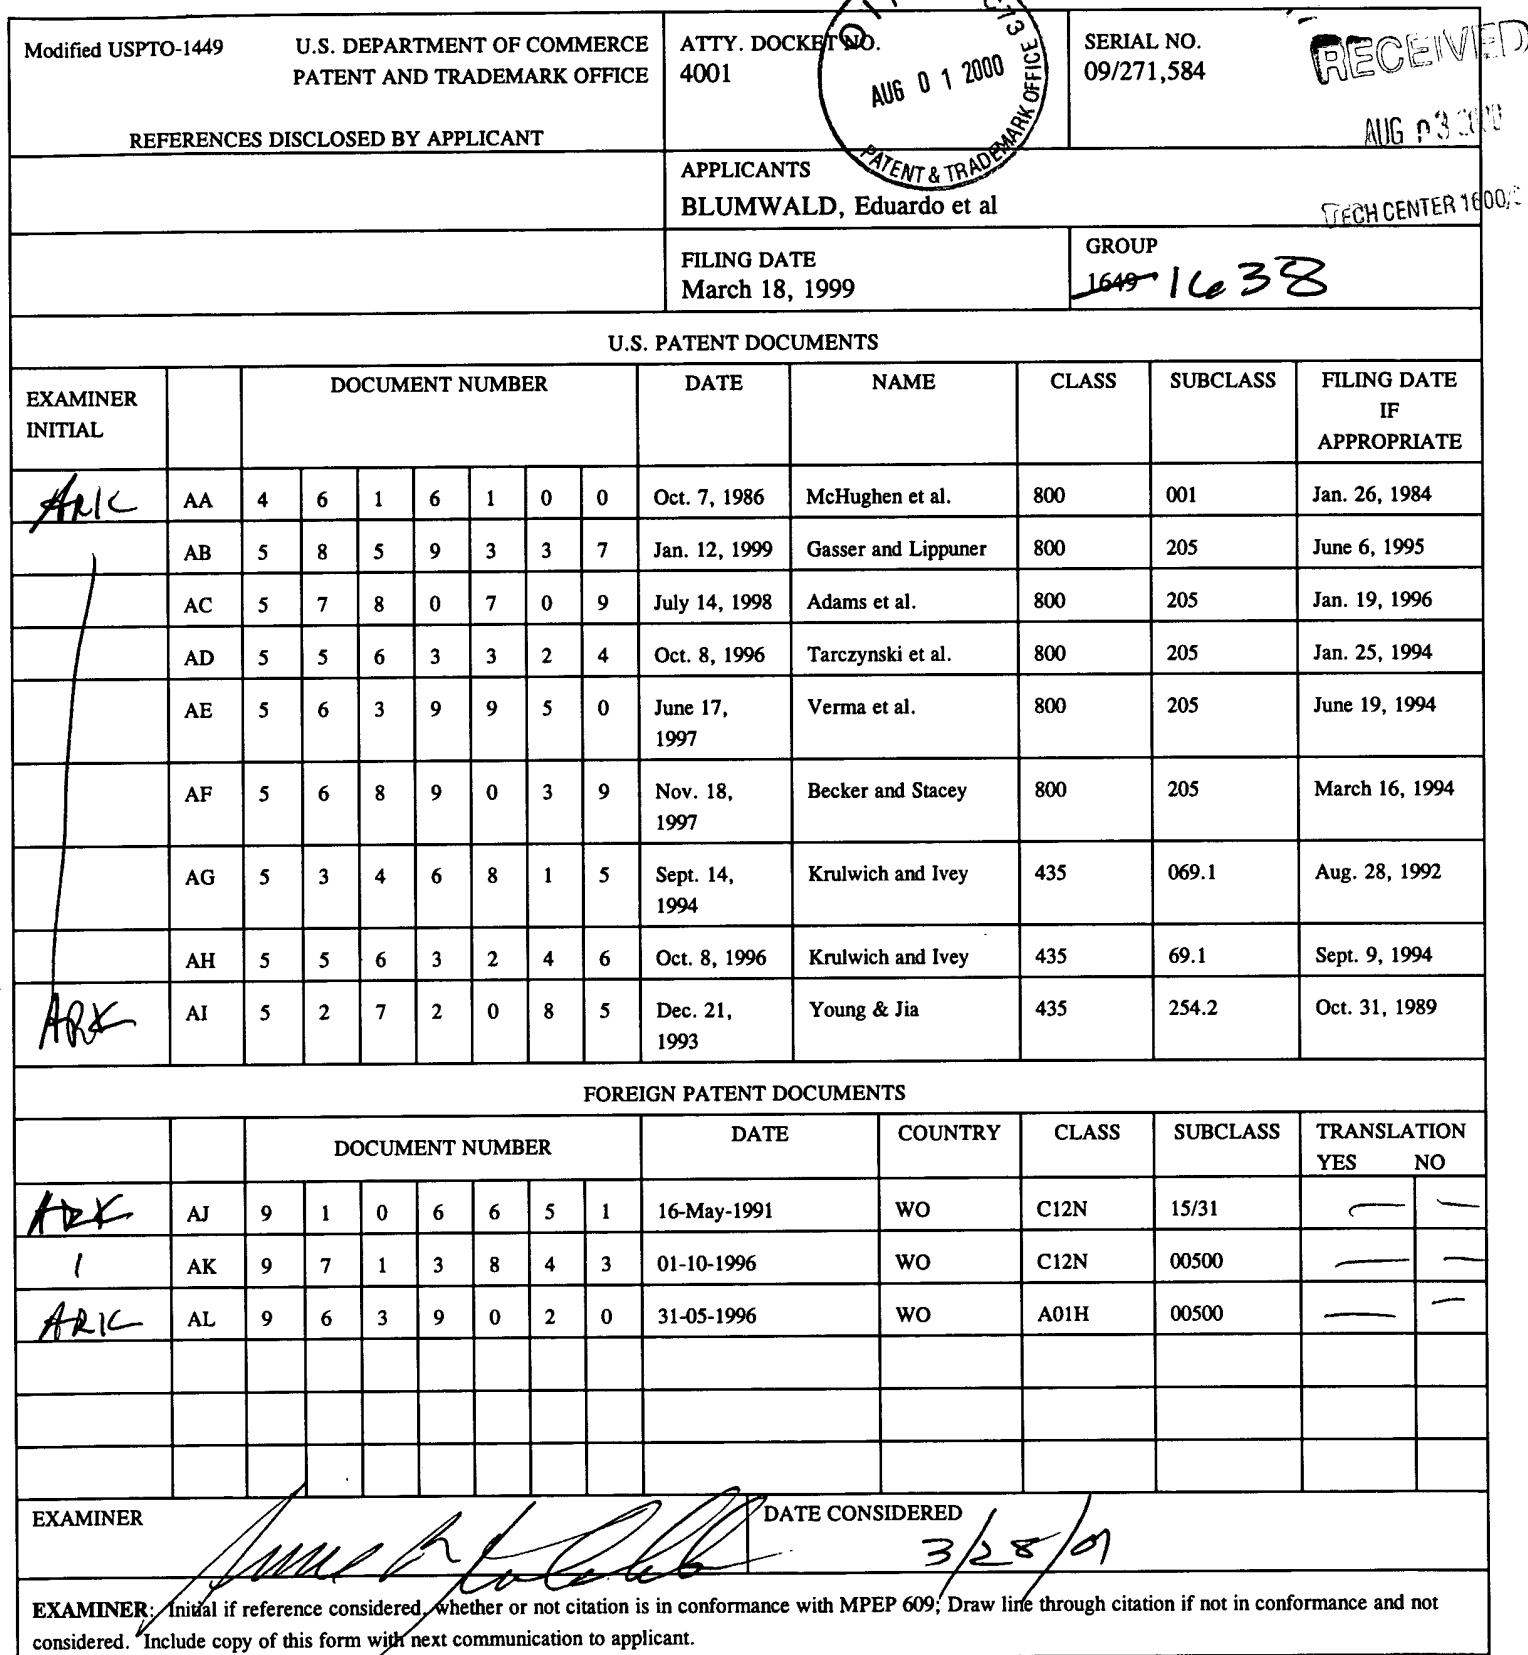 Modified USPTO-1449 U.S. DEPARTMENT OF COMMERCE
PATENT AND TRADEMARK OFFICE
REFERENCES DISCLOSED BY APPLICANT
ATTY. DOCKET NO.
4001
AUG 0 1 2000
PATENT & TRADEMARK OFFICE
SERIAL NO.
09/271,584
RECEIVED
AUG 03 2000
TECH CENTER 1600/
APPLICANTS
BLUMWALD, Eduardo et al
FILING DATE
March 18, 1999
GROUP
1649 1638
U.S. PATENT DOCUMENTS
EXAMINER INITIAL DOCUMENT NUMBER DATE NAME CLASS SUBCLASS FILING DATE IF APPROPRIATE
ARK AA 4 6 1 6 1 0 0 Oct. 7, 1986 McHughen et al. 800 001 Jan. 26, 1984
AB 5 8 5 9 3 3 7 Jan. 12, 1999 Gasser and Lippuner 800 205 June 6, 1995
AC 5 7 8 0 7 0 9 July 14, 1998 Adams et al. 800 205 Jan. 19, 1996
AD 5 5 6 3 3 2 4 Oct. 8, 1996 Tarczynski et al. 800 205 Jan. 25, 1994
AE 5 6 3 9 9 5 0 June 17, 1997 Verma et al. 800 205 June 19, 1994
AF 5 6 8 9 0 3 9 Nov. 18, 1997 Becker and Stacey 800 205 March 16, 1994
AG 5 3 4 6 8 1 5 Sept. 14, 1994 Krulwich and Ivey 435 069.1 Aug. 28, 1992
AH 5 5 6 3 2 4 6 Oct. 8, 1996 Krulwich and Ivey 435 69.1 Sept. 9, 1994
ARK AI 5 2 7 2 0 8 5 Dec. 21, 1993 Young & Jia 435 254.2 Oct. 31, 1989
FOREIGN PATENT DOCUMENTS
DOCUMENT NUMBER DATE COUNTRY CLASS SUBCLASS TRANSLATION YES NO
ARK AJ 9 1 0 6 6 5 1 16-May-1991 WO C12N 15/31 — —
AK 9 7 1 3 8 4 3 01-10-1996 WO C12N 00500 — —
ARK AL 9 6 3 9 0 2 0 31-05-1996 WO A01H 00500 — —
EXAMINER
DATE CONSIDERED 3/28/01
EXAMINER: Initial if reference considered, whether or not citation is in conformance with MPEP 609; Draw line through citation if not in conformance and not
considered. Include copy of this form with next communication to applicant.